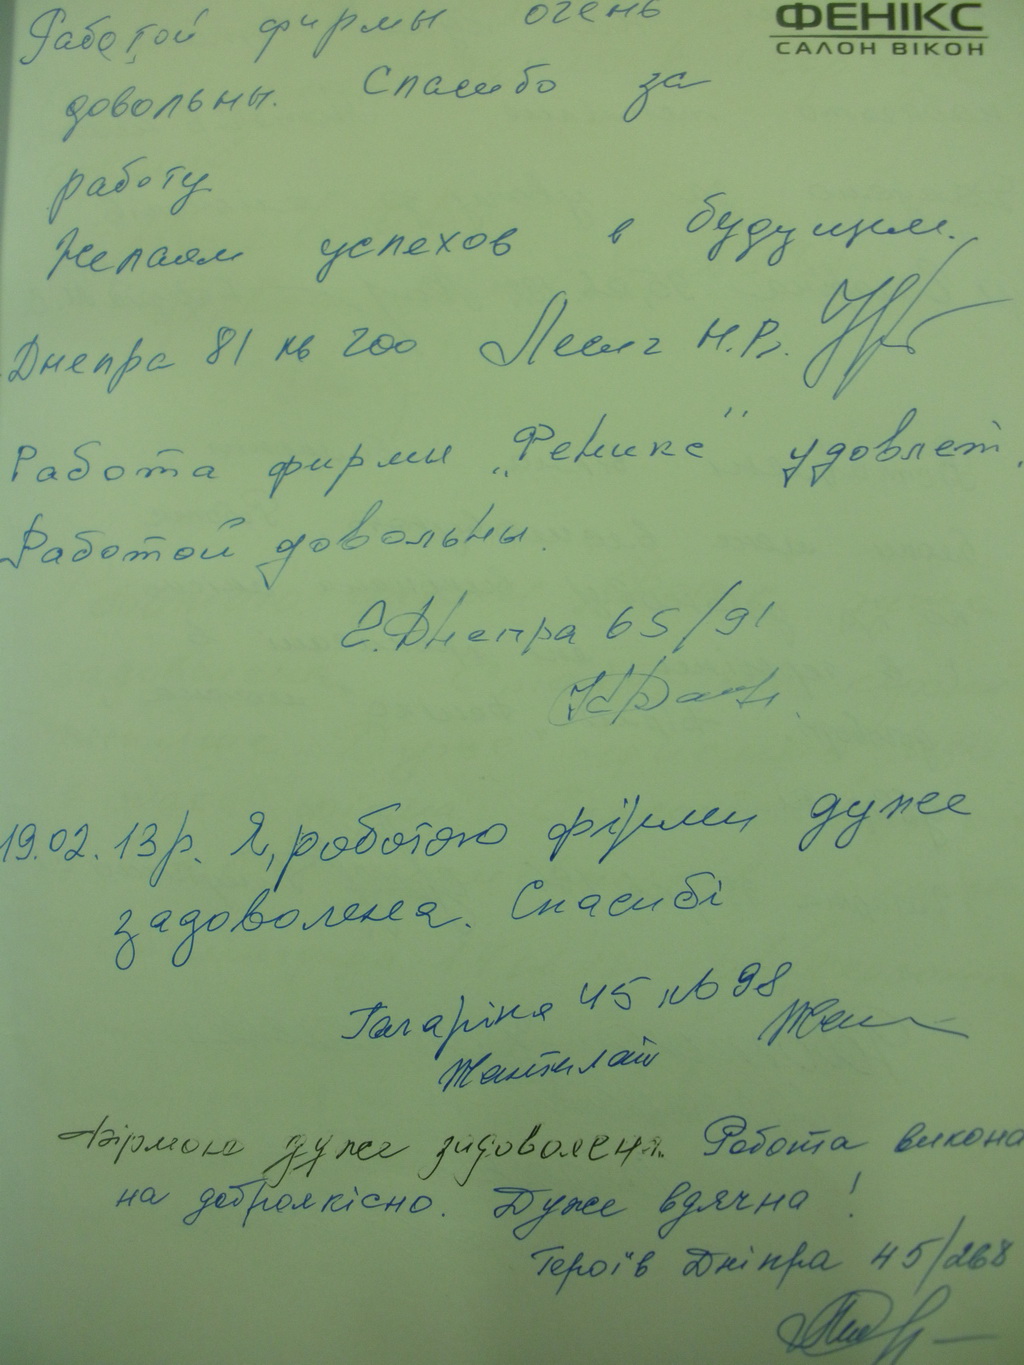 ФЕНІКС
САЛОН ВІКОН
Работой фирмы очень
довольны. Спасибо за
работу
Желаем успехов в будущем.
Днепра 81 кв 200 Н.Р.
Работа фирмы „Феникс" удовлет.
Работой довольны.
Г. Днепра 65/91
19.02.13р. Я, роботою фірми дуже
задоволена. Спасибі
Гагаріна 45 кв 98
Фірмою дуже задоволена. Робота викона
на доброякісно. Дуже вдячна!
Героїв Дніпра 45/268